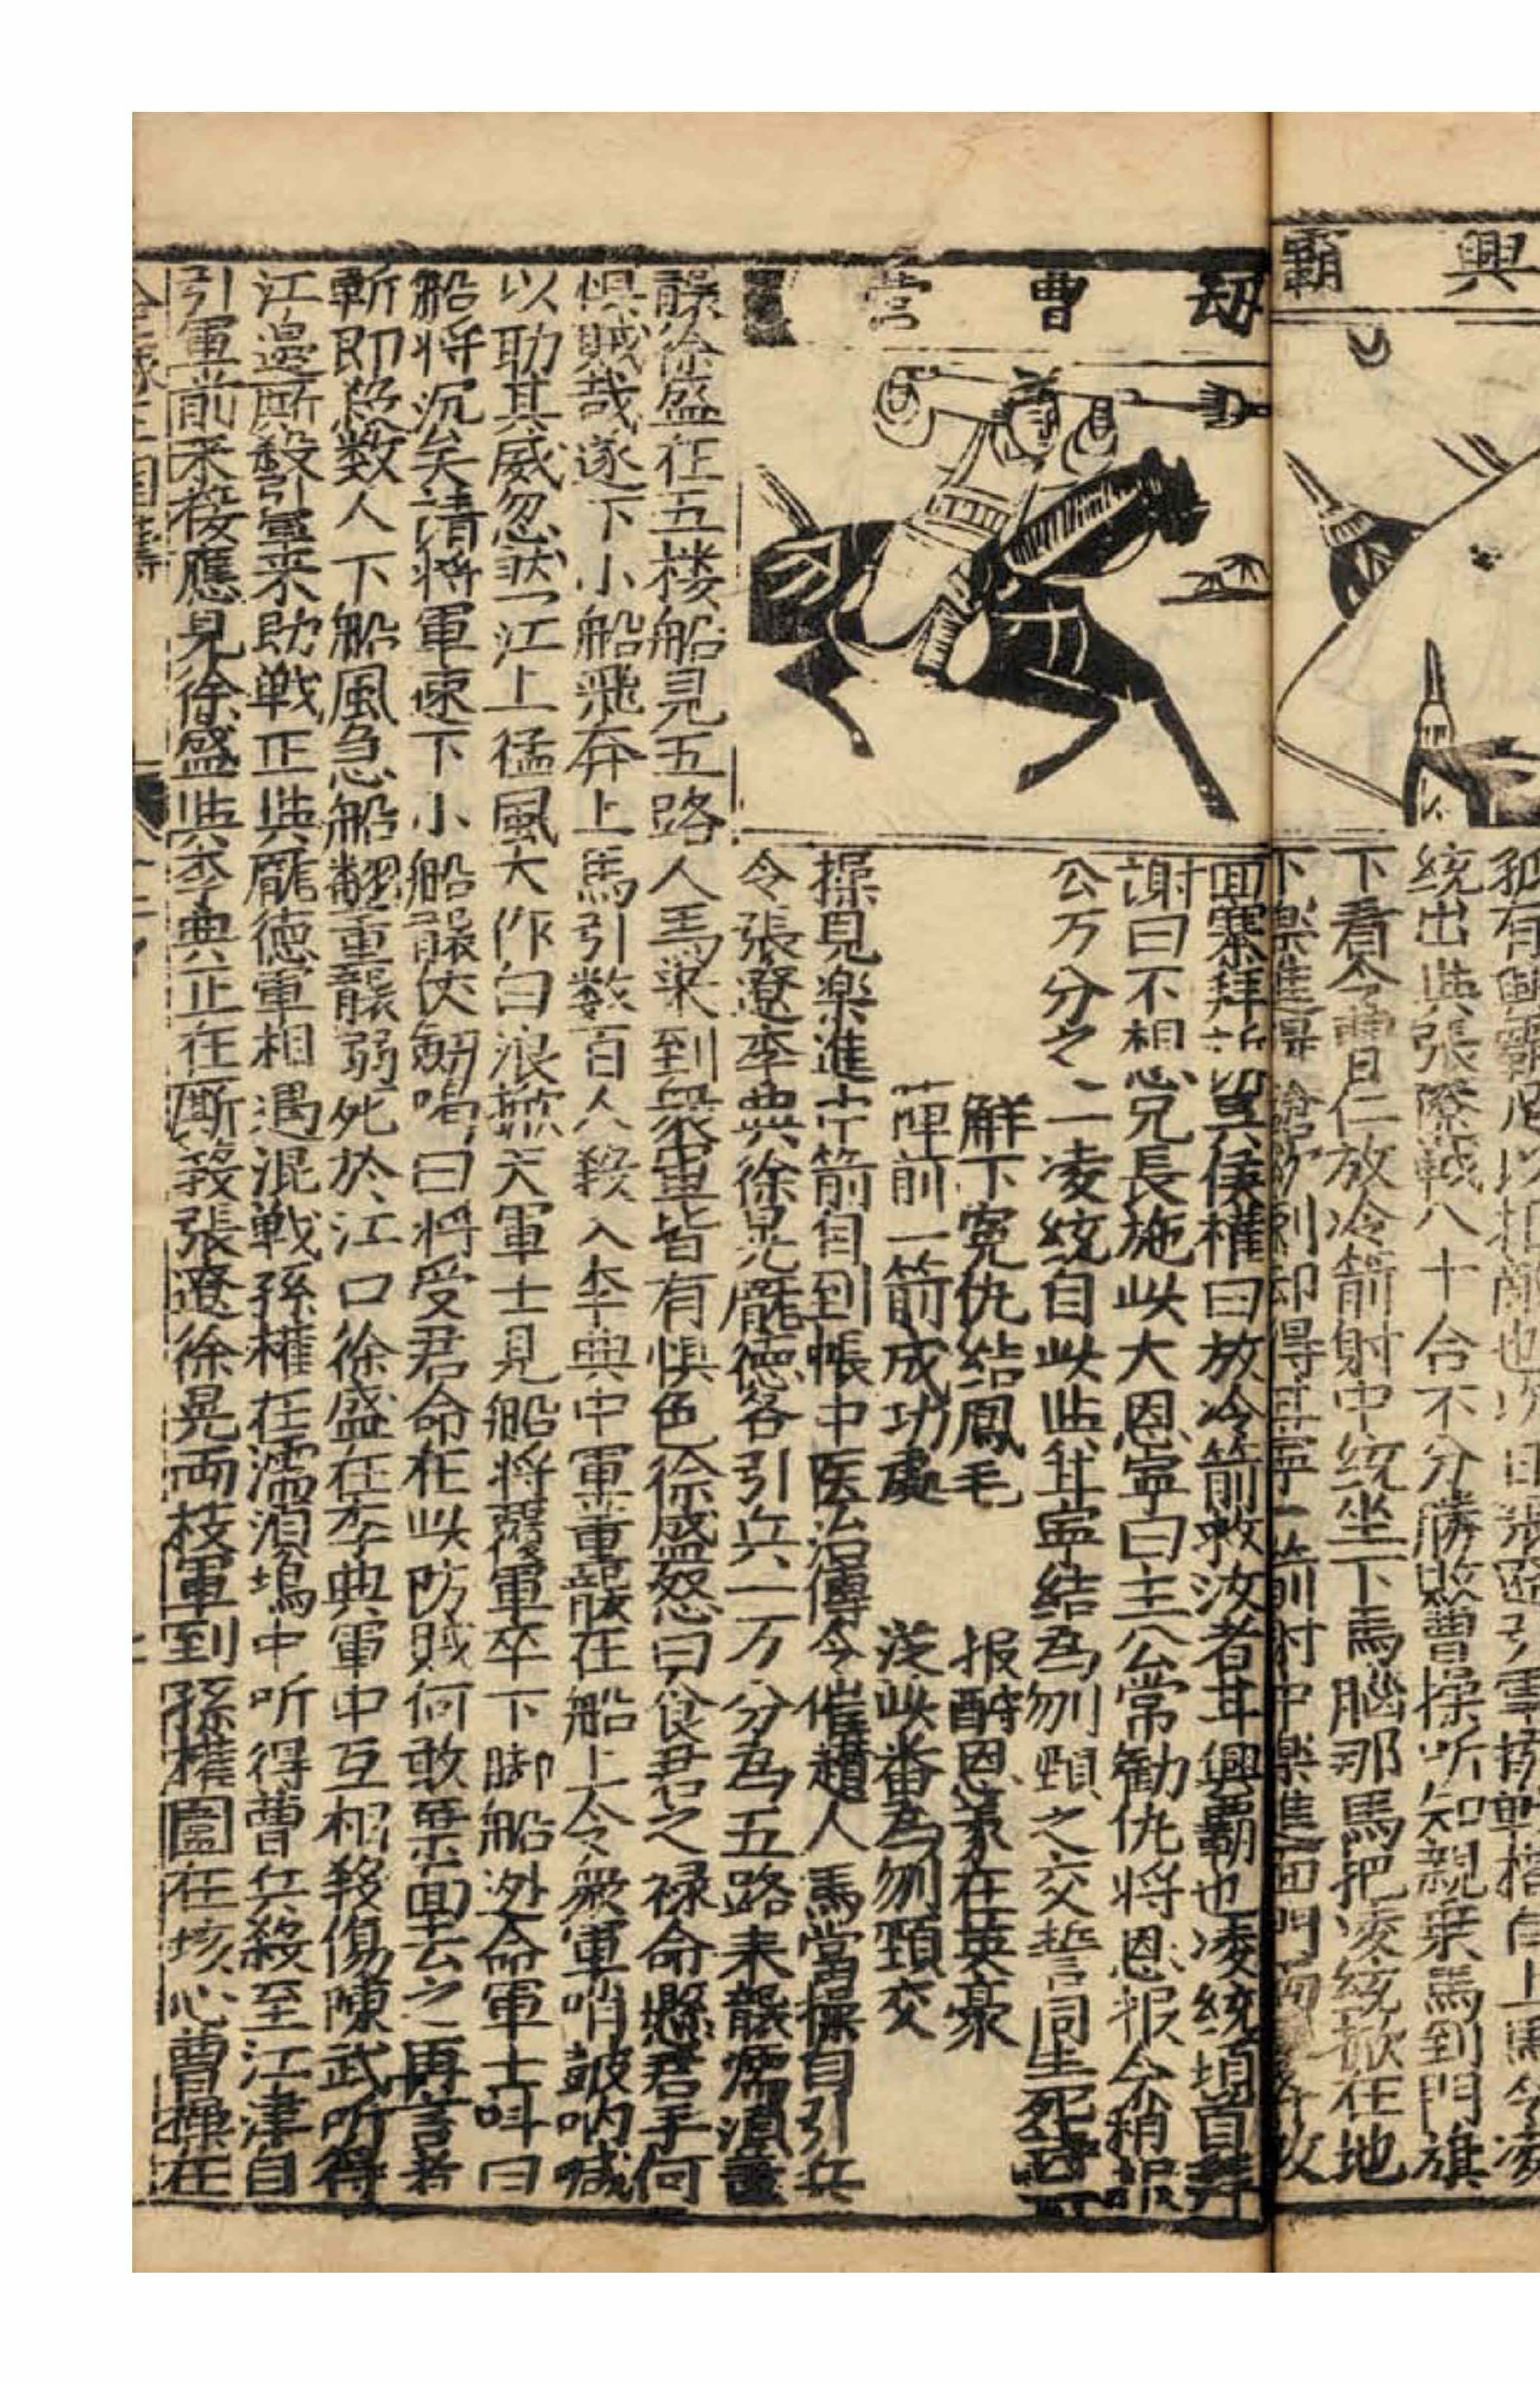 興霸
孤有興霸
統出與張遼戰八十合不分勝敗曹操听知親乗馬到門旗
下看令曹仁放冷箭射中統坐下馬腦那馬把凌統掀在地
一箭射中樂進面門
刼曹營
回寨拜謝吳侯權曰放冷箭救汝者甘興霸也凌統頓首拜
謝曰不想兄長施此大恩寧曰主公常勸仇將恩报今稍報
公万分之二凌統自此與甘寧結為刎頸之交誓同生死
解下寃仇結鳳毛 报酧恩義在英豪
陣前一箭成功處 從此番為刎頸交
操見樂進中箭自到帳中医治傳令催趲人馬當操自引兵
令張遼李典徐晃龐德各引兵一万分為五路来襲濡湏
襲徐盛在五楼船見五路人馬来到衆軍皆有惧色徐盛怒曰食君之禄命懸君手何
惧賊哉遂下小船飛奔上馬引数百人殺入李典中軍董襲在船上令衆軍哨皷呐喊
以助其威忽然江上猛風大作白浪掀天軍士見船將覆軍卒下脚船迯命軍士呌曰
船將沉矣請將軍速下小船襲仗劒喝曰將受君命在此防賊何敢棄而去之再言者
斬即殺数人下船風急船翻董襲死於江口徐盛在李典軍中互相殺傷陳武听得
江邊厮殺引軍来助戰正與龐德軍相遇混戰孫權在濡湏塢中听得曹兵殺至江津自
引軍前来接應見徐盛與李典正在厮殺張遼徐晃両枝軍到孫權圍在垓心曹操在